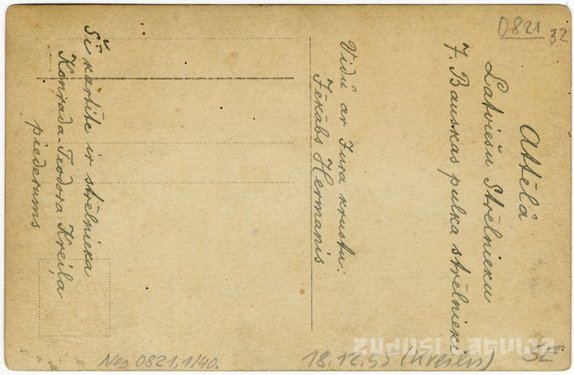 0821
32
Attēlā
Latviešu Strēlnieku
7. Bauskas pulka strēlnieki
Vidū ar Jura krustu:
Jēkabs Hermanis
Šī kartīte ir strēlnieka
Konrāda-Teodora Kreiļa
piederums
Neg. 0821,1/40.
18.12.55 (Kreilis)
ZUDUSI LATVIJA